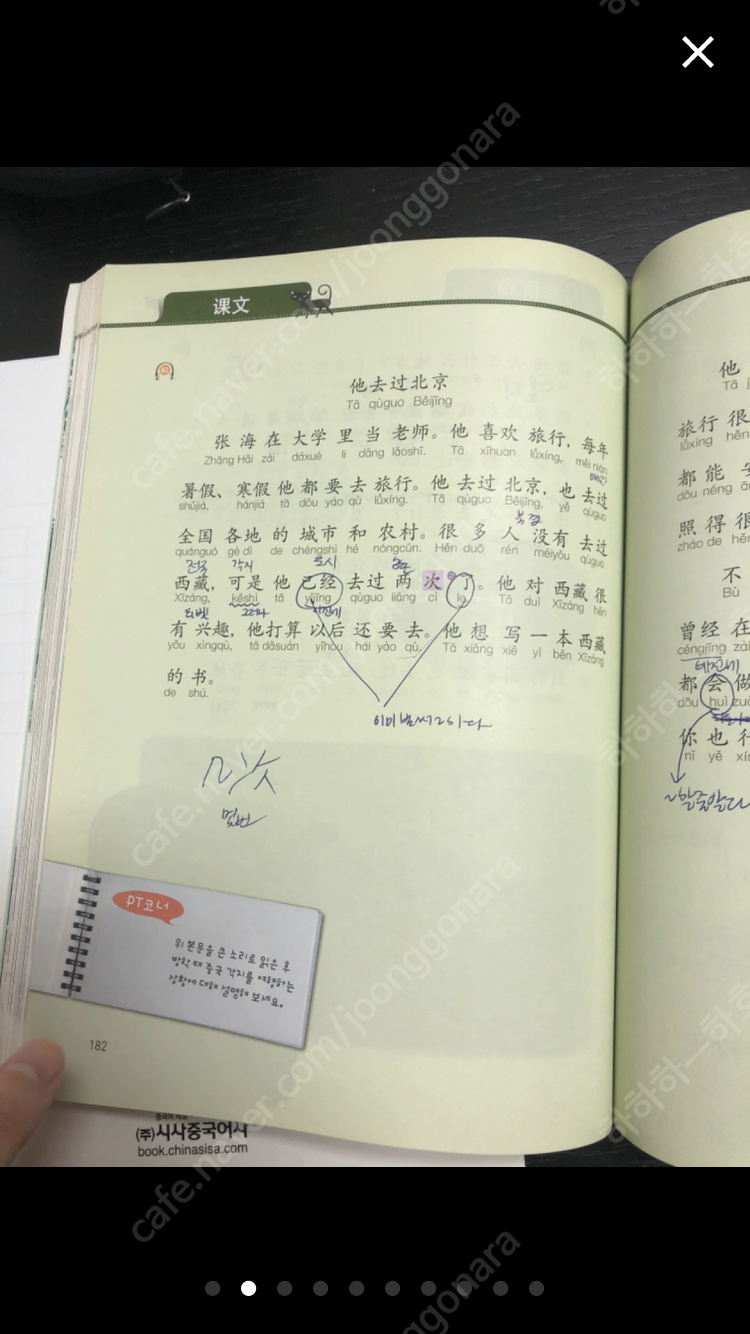 课文
他去过北京
Tā qùguo Běijīng
张海在大学里当老师。他喜欢旅行，每年
Zhāng Hǎi zài dàxué li dāng lǎoshī. Tā xǐhuan lǚxíng, měi nián
매년
暑假、寒假他都要去旅行。他去过北京，也去过
shǔjià, hánjià tā dōu yào qù lǚxíng. Tā qùguo Běijīng, yě qùguo
북경
全国各地的城市和农村。很多人没有去过
quánguó gè dì de chéngshì hé nóngcūn. Hěn duō rén méiyǒu qùguo
전국 각지 도시 농촌
西藏，可是他已经去过两次了。他对西藏很
Xīzàng, kěshì tā yǐjīng qùguo liǎng cì le. Tā duì Xīzàng hěn
티벳 그러나 이전에
有兴趣，他打算以后还要去。他想写一本西藏
yǒu xìngqù, tā dǎsuàn yǐhòu hái yào qù. Tā xiǎng xiě yì běn Xīzàng
的书。
de shū.
이미 벌써 ~이다
几次
몇번
PT코너
위 본문을 큰 소리로 읽은 후
방학 때 중국 각지를 여행하는
상황에 대해 설명해 보세요.
182
(주)시사중국어사
book.chinasisa.com
他
Tā
旅行很
lǚxíng hěn
都能
dōu néng
照得很
zhào de hěn
不
Bù
曾经在
céngjīng zài
都会做
dōu huì
你也行
nǐ yě xíng
~할줄알다
cafe.naver.com/joonggonara
하하하